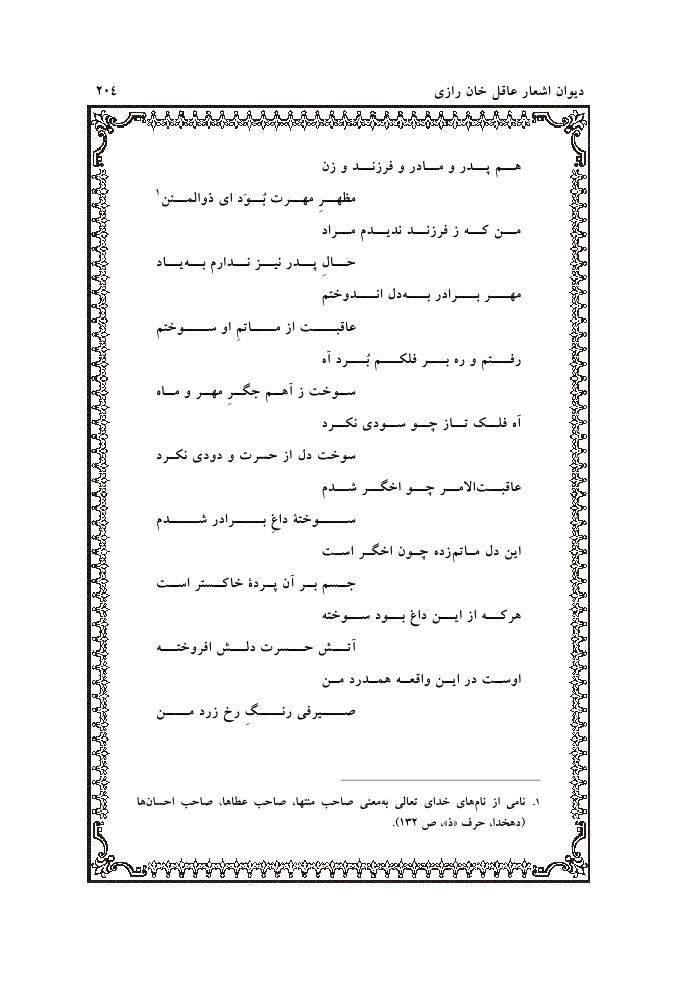 دیوان اشعار عاقل خان رازی ۲۰٤
هم پدر و مادر و فرزند و زن
مظهرِ مهرت بُوَد ای ذوالمنن۱
من که ز فرزند ندیدم مراد
حالِ پدر نیز ندارم به‌یاد
مهر برادر به‌دل اندوختم
عاقبت از ماتمِ او سوختم
رفتم و ره بر فلکم بُرد آه
سوخت ز آهم جگرِ مهر و ماه
آه فلک تاز چو سودی نکرد
سوخت دل از حسرت و دودی نکرد
عاقبت‌الامر چو اخگر شدم
سوختهٔ داغِ برادر شدم
این دل ماتم‌زده چون اخگر است
جسم بر آن پردهٔ خاکستر است
هرکه از این داغ بود سوخته
آتش حسرت دلش افروخته
اوست در این واقعه همدرد من
صیرفی رنگِ رخ زرد من
۱. نامی از نام‌های خدای تعالی به‌معنی صاحب منتها، صاحب عطاها، صاحب احسان‌ها
(دهخدا، حرف «ذ»، ص ۱۳۲).